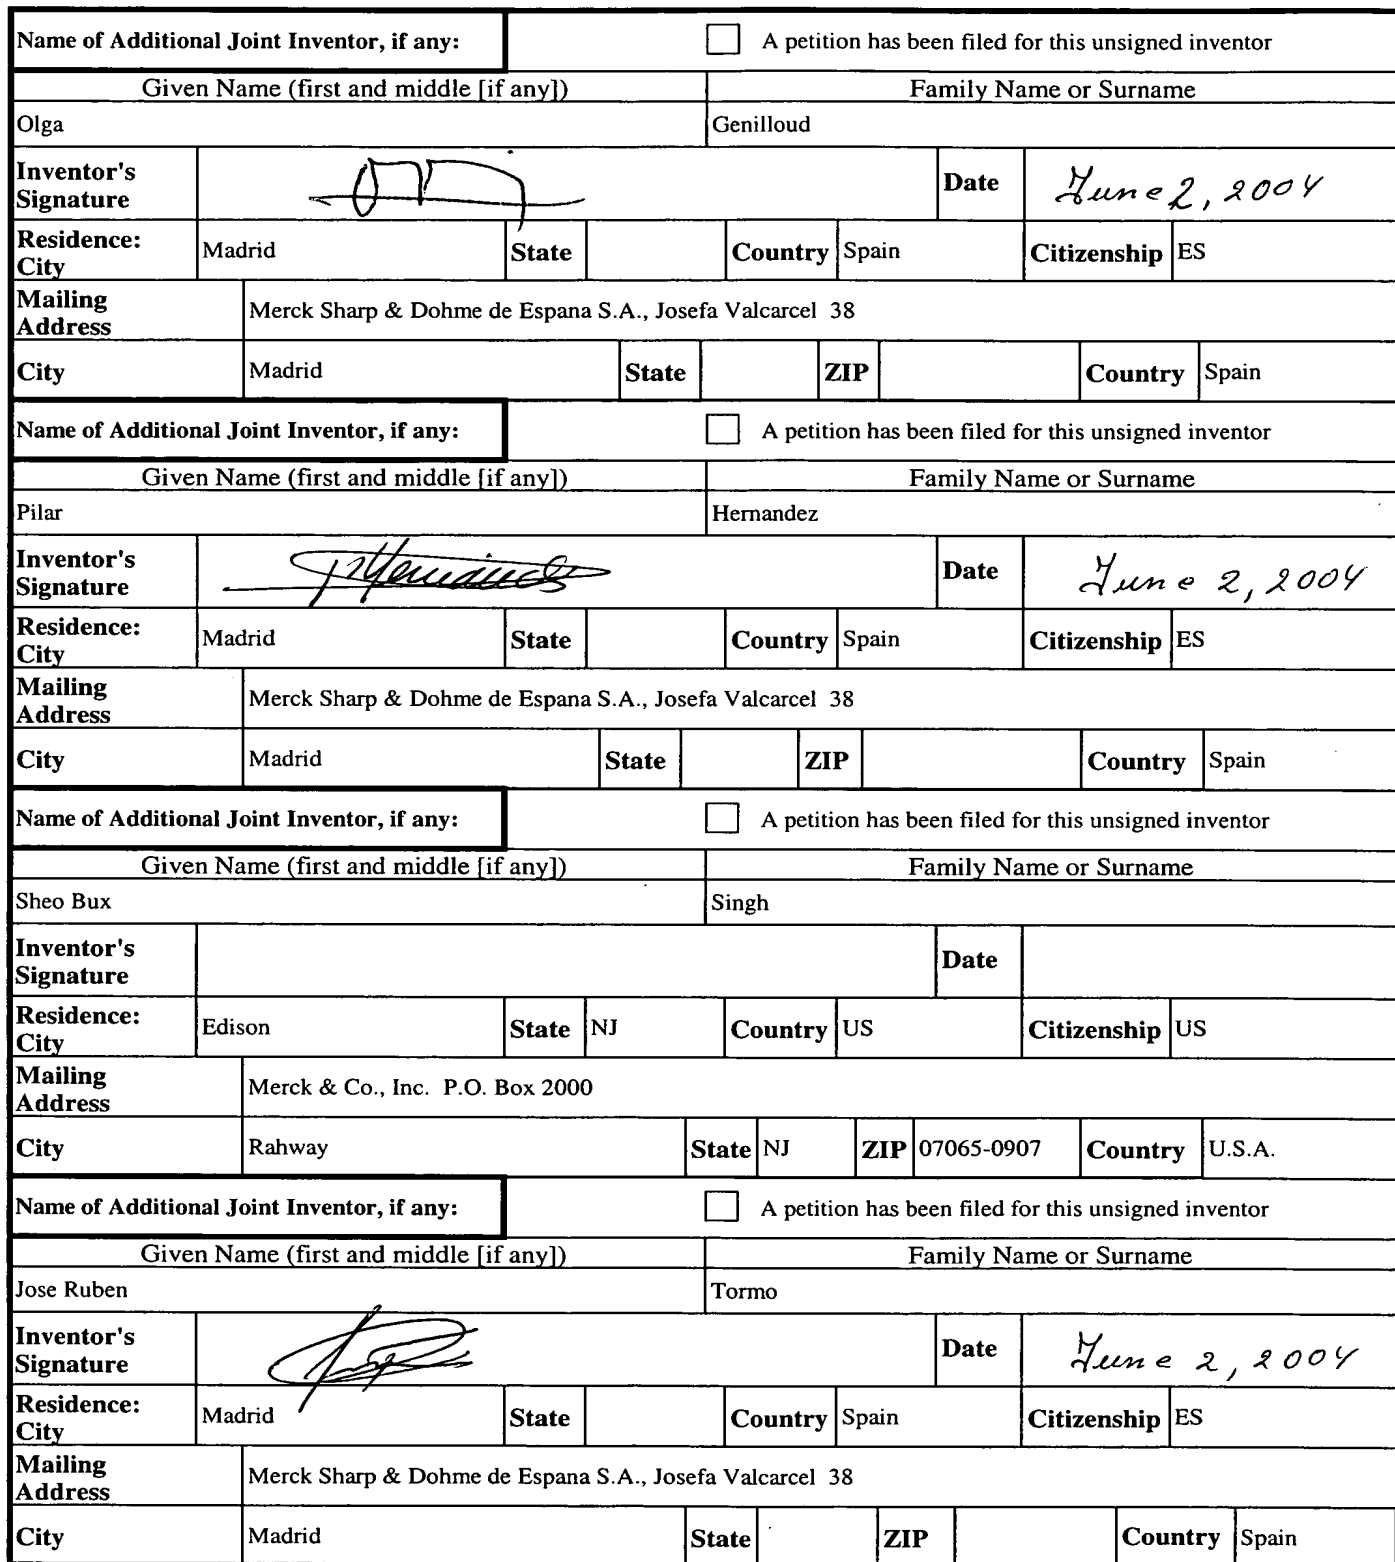 Name of Additional Joint Inventor, if any: A petition has been filed for this unsigned inventor
Given Name (first and middle [if any]) Family Name or Surname
Olga Genilloud
Inventor's Signature Date June 2, 2004
Residence: City Madrid State Country Spain Citizenship ES
Mailing Address Merck Sharp & Dohme de Espana S.A., Josefa Valcarcel 38
City Madrid State ZIP Country Spain
Name of Additional Joint Inventor, if any: A petition has been filed for this unsigned inventor
Given Name (first and middle [if any]) Family Name or Surname
Pilar Hernandez
Inventor's Signature PHernandez Date June 2, 2004
Residence: City Madrid State Country Spain Citizenship ES
Mailing Address Merck Sharp & Dohme de Espana S.A., Josefa Valcarcel 38
City Madrid State ZIP Country Spain
Name of Additional Joint Inventor, if any: A petition has been filed for this unsigned inventor
Given Name (first and middle [if any]) Family Name or Surname
Sheo Bux Singh
Inventor's Signature Date
Residence: City Edison State NJ Country US Citizenship US
Mailing Address Merck & Co., Inc. P.O. Box 2000
City Rahway State NJ ZIP 07065-0907 Country U.S.A.
Name of Additional Joint Inventor, if any: A petition has been filed for this unsigned inventor
Given Name (first and middle [if any]) Family Name or Surname
Jose Ruben Tormo
Inventor's Signature Date June 2, 2004
Residence: City Madrid State Country Spain Citizenship ES
Mailing Address Merck Sharp & Dohme de Espana S.A., Josefa Valcarcel 38
City Madrid State ZIP Country Spain